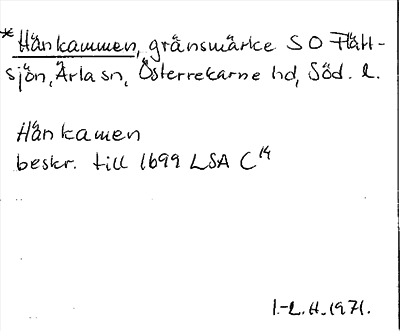 *Hånkammen, gränsmärke SO Flätt-
sjön, Ärla sn, Österrekarne hd, Söd. l.
Hånkamen
beskr. till 1699 LSA C14
I.-L.H. 1971.